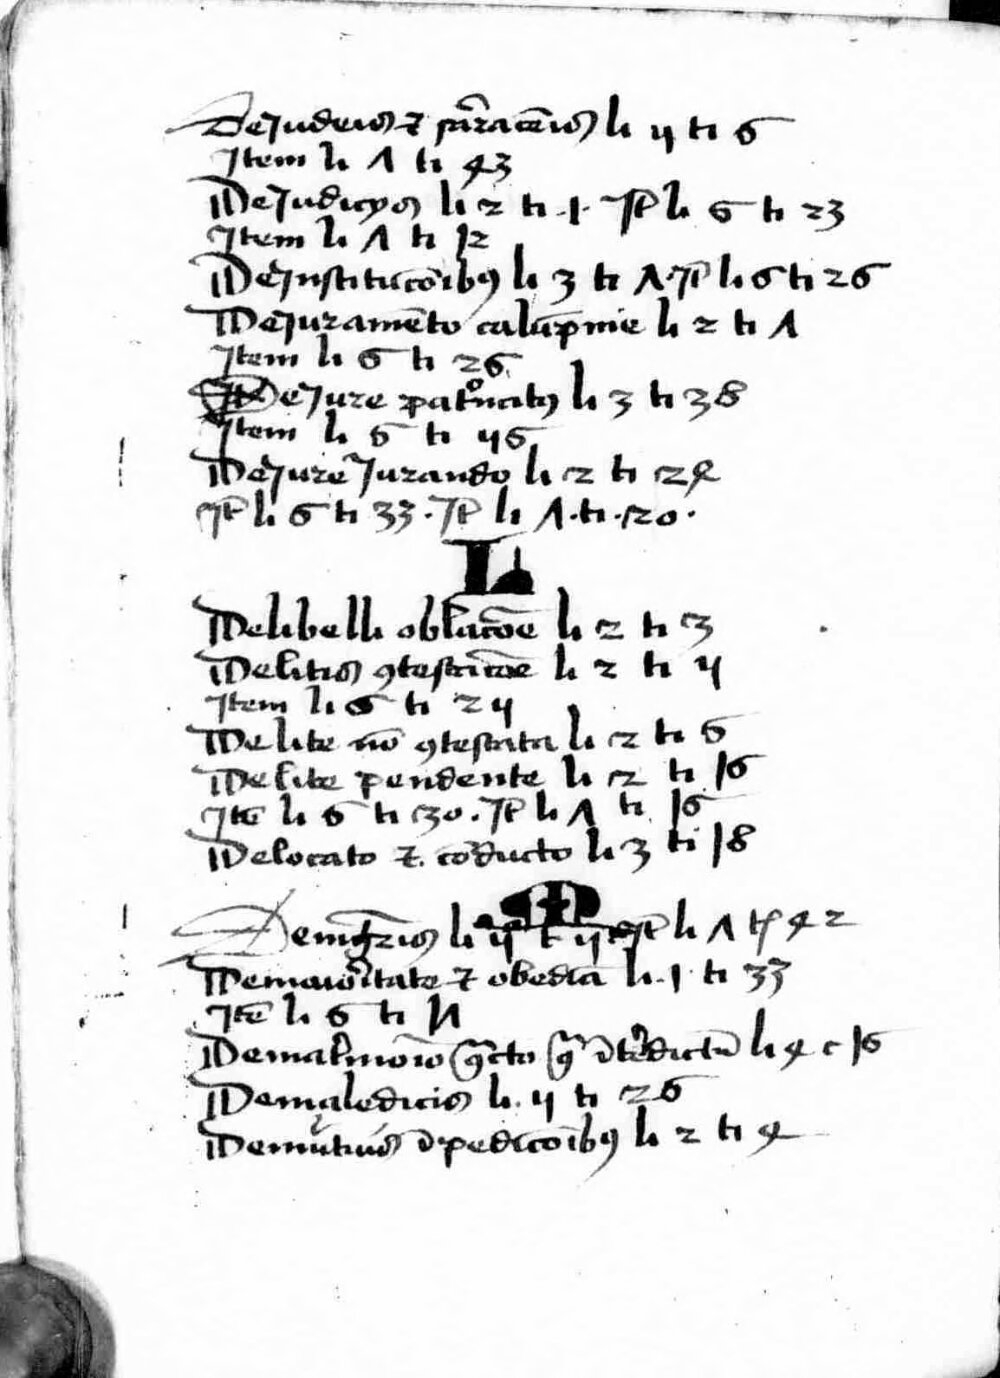 De Judeis & saracenis li 4 ti 6
Item li Λ ti 43
De Judicijs li 2 ti .1. Jt li 6 ti 23
Item li Λ ti 12
De Institucoibꝫ li 3 ti Λ. Jt li 6 ti 26
De Juramēto calūpnie li 2 ti Λ
Item li 6 ti 26
De Jure patᵒnatꝰ li 3 ti 38
Item li 6 ti 46
De Jure Jurando li 2 ti 24
Jt li 6 ti 33. Jt li Λ.ti.20.
L
De libelli oblacōe li 2 ti 3
De litis ꝯtestacōe li 2 ti 4
Item li 6 ti 24
De lite nō ꝯtestata li 2 ti 6
De lite pendente li 2 ti 16
Jtē li 6 ti 30. Jt li Λ ti 16
De locato & cōducto li 3 ti 18
M
De mgris li 4 t 4 Jt li Λ ti 42
De maioritate & obediā li .1 ti 33
Jtē li 6 ti 1Λ
De matrimonio ꝯtcto ꝯᵃ īterdictū li 4 c 16
De maledicis li. 4 ti 26
De mutuis peticoibꝫ li 2 ti 4